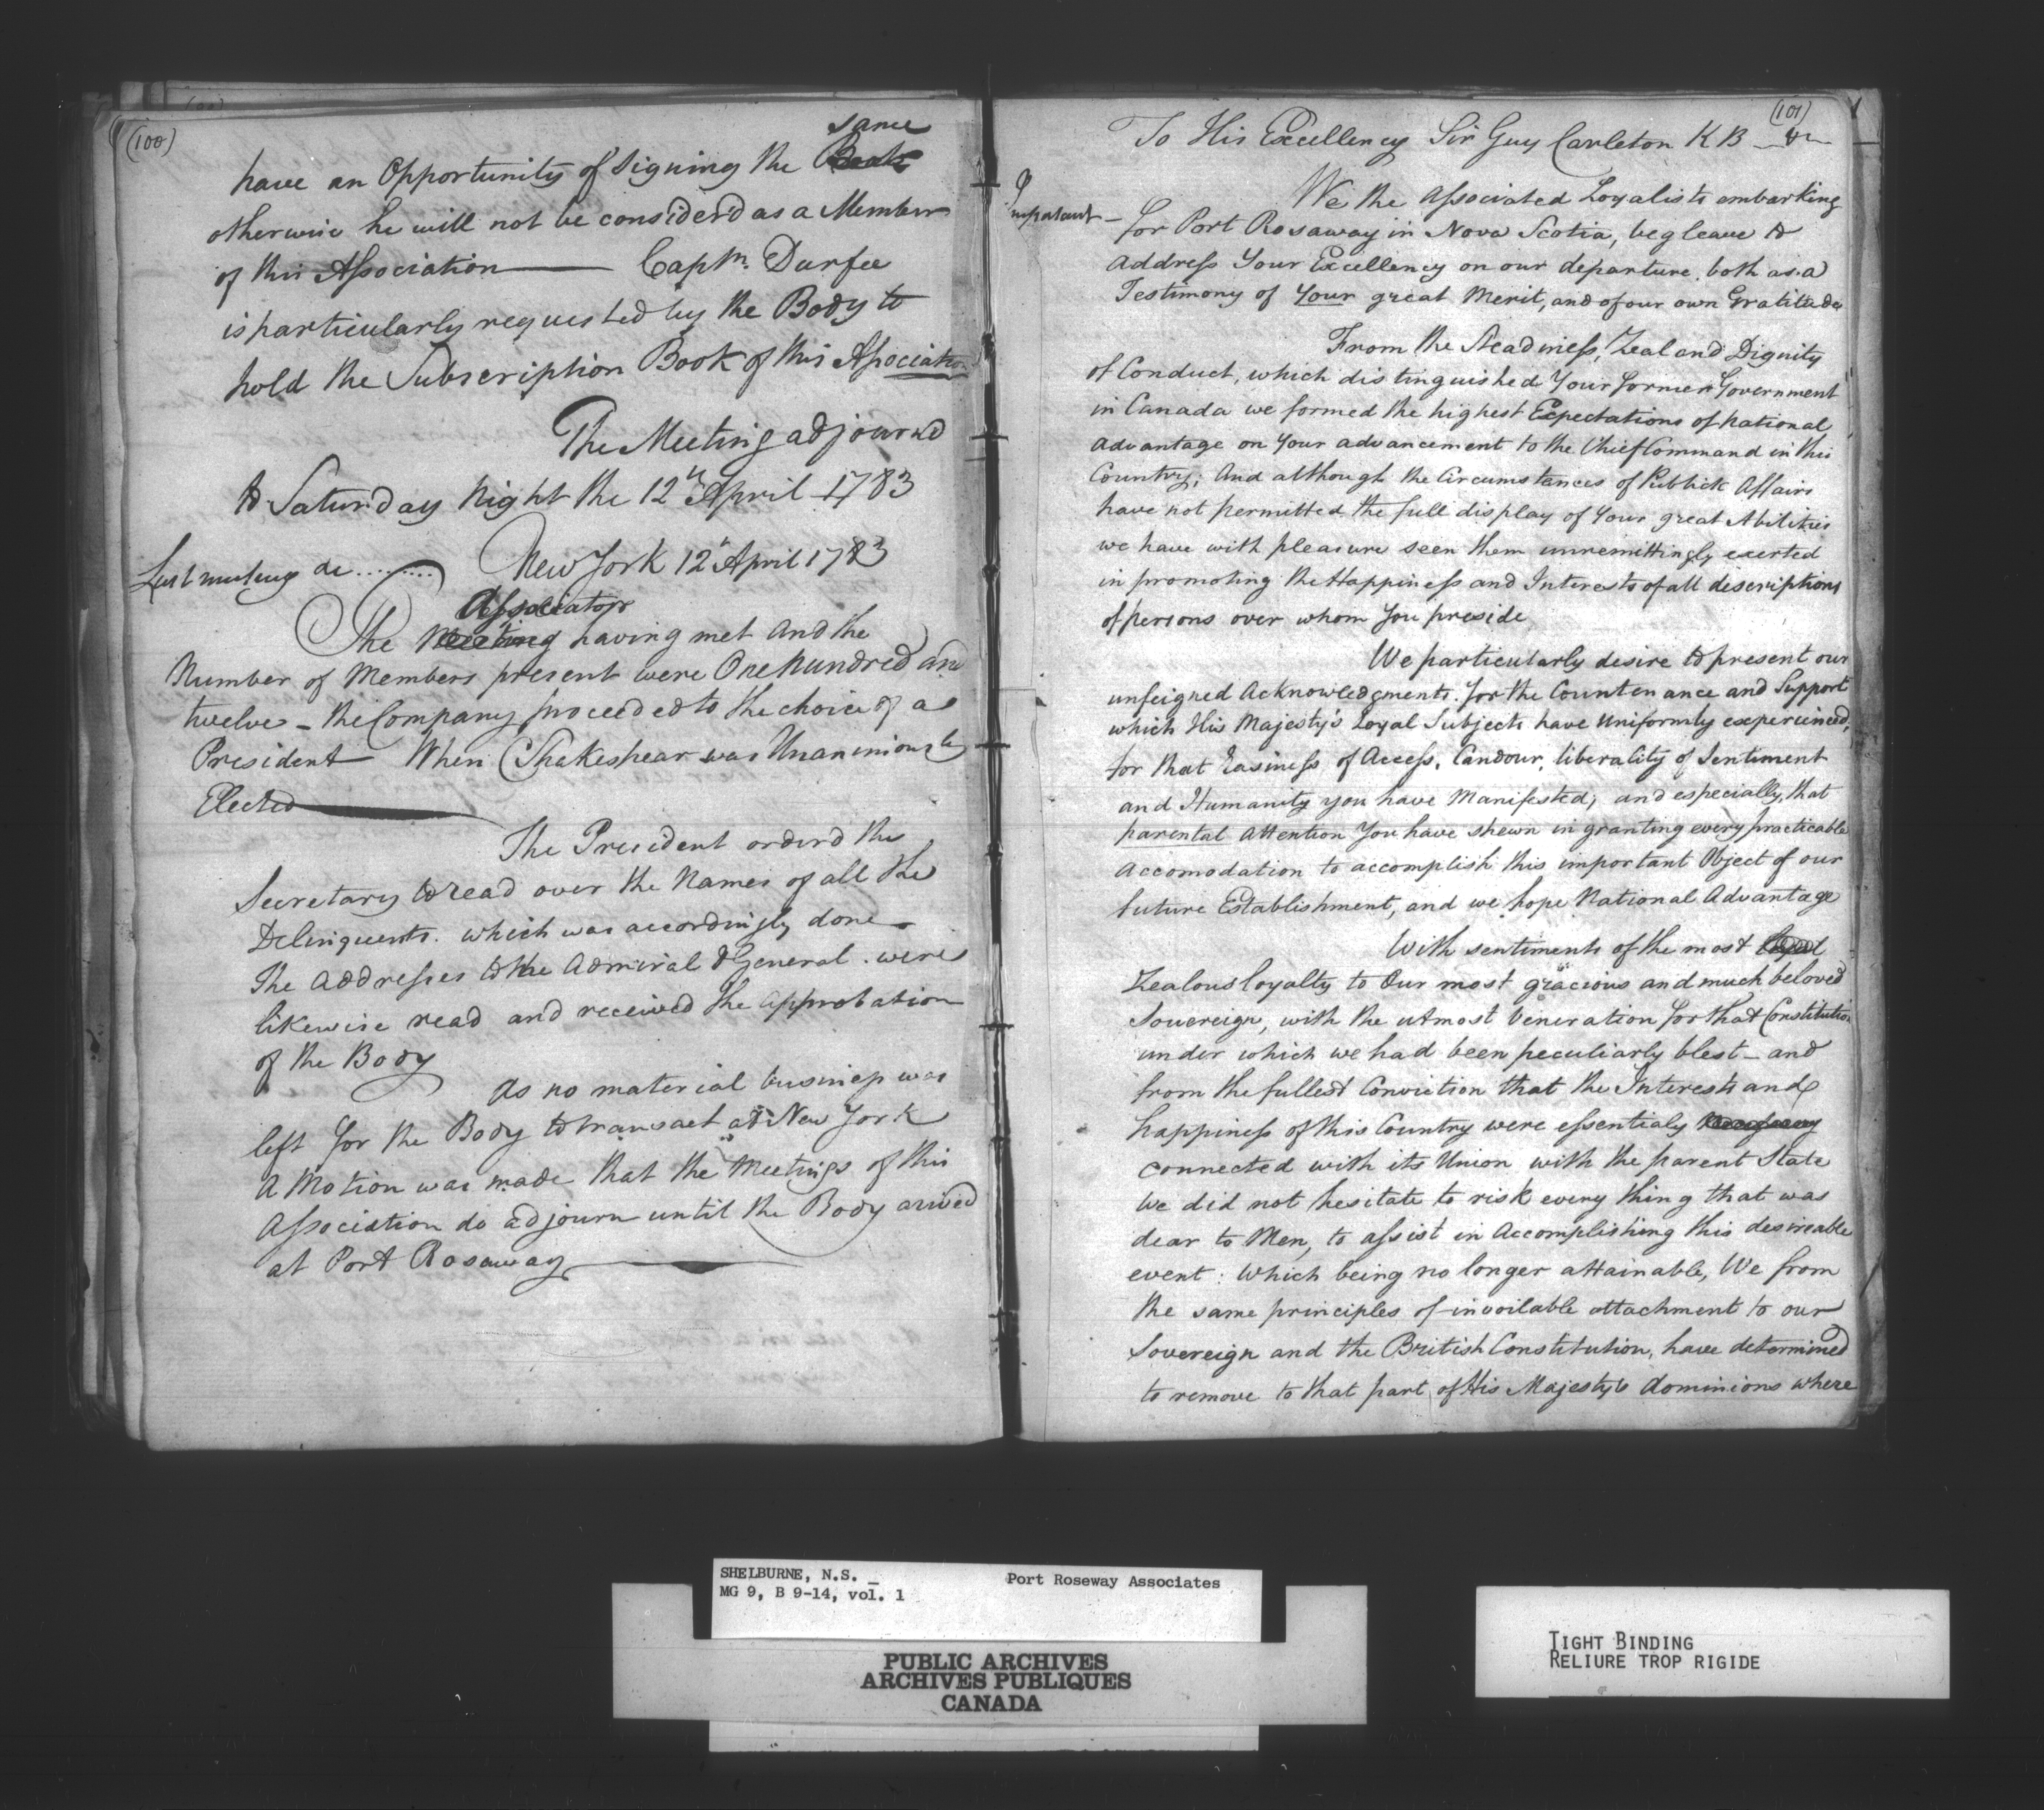 (100)
same
have an Opportunity of Signing the Book
otherwise he will not be considerd as a Member
of this Association —— Captn. Durfee
is particularly requested by the Body to
hold the Subscription Book of this Association
The Meeting adjournd
to Saturday Night the 12th April 1783
Last meeting &c ......... New York 12th April 1783
Associators
The Meeting having met and the
Number of Members present were One hundred and
twelve – the Company proceeded to the choice of a
President When Shakespear was Unanimously
Elected
The President orderd the
Secretary to read over the Names of all the
Delinquents. which was accordingly done
The Addresses to the Admiral & General. were
likewise read and received the Approbation
of the Body
As no material business was
left for the Body to transact at New York
A Motion was made that the Meetings of this
Association do adjourn until the Body arived
at Port Rosaway
(101)
To His Excellency Sir Guy Carleton K B &c
Important –
We the Associated Loyalists embarking
for Port Rosaway in Nova Scotia, beg leave to
Address Your Excellency on our departure, both as a
Testimony of Your great Merit, and of our own Gratitude
From the Steadiness, Zeal and Dignity
of Conduct, which distinguished Your former Government
in Canada we formed the highest Expectations of National
Advantage on Your advancement to the Chief Command in this
Country; And although the Circumstances of Publick Affairs
have not permitted the full display of Your great Abilities
we have with pleasure seen them unremittingly exerted
in promoting the Happiness and Interests of all discriptions
of persons over whom You preside
We particularly desire to present our
unfeigned Acknowledgments. for the Countenance and Support
which His Majesty's Loyal Subjects have Uniformly experienced,
for that Easiness of Access, Candour, liberality of Sentiment
and Humanity you have Manifested; and especially, that
parental Attention You have shewn in granting every practicable
Accomodation to accomplish this important Object of our
future Establishment, and we hope National Advantage
With sentiments of the most
Zealous loyalty to Our most gracious and much beloved
Sovereign, with the utmost Veneration for that Constitution
under which we had been peculiarly blest – and
from the fullest Conviction that the Interests and
happiness of this Country were essentialy
connected with its Union with the parent State
We did not hesitate to risk every thing that was
dear to Men, to assist in Accomplishing this desireable
event: Which being no longer attainable, We from
the same principles of invoilable attachment to our
Sovereign and the British Constitution, have determined
to remove to that part of His Majesty's dominions where
SHELBURNE, N.S. _ Port Roseway Associates
MG 9, B 9-14, vol. 1
PUBLIC ARCHIVES
ARCHIVES PUBLIQUES
CANADA
TIGHT BINDING
RELIURE TROP RIGIDE